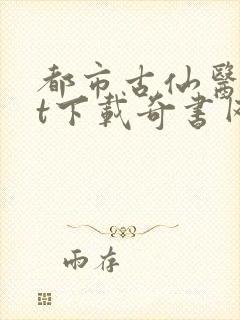 都市古仙醫
t下載奇書
雨存